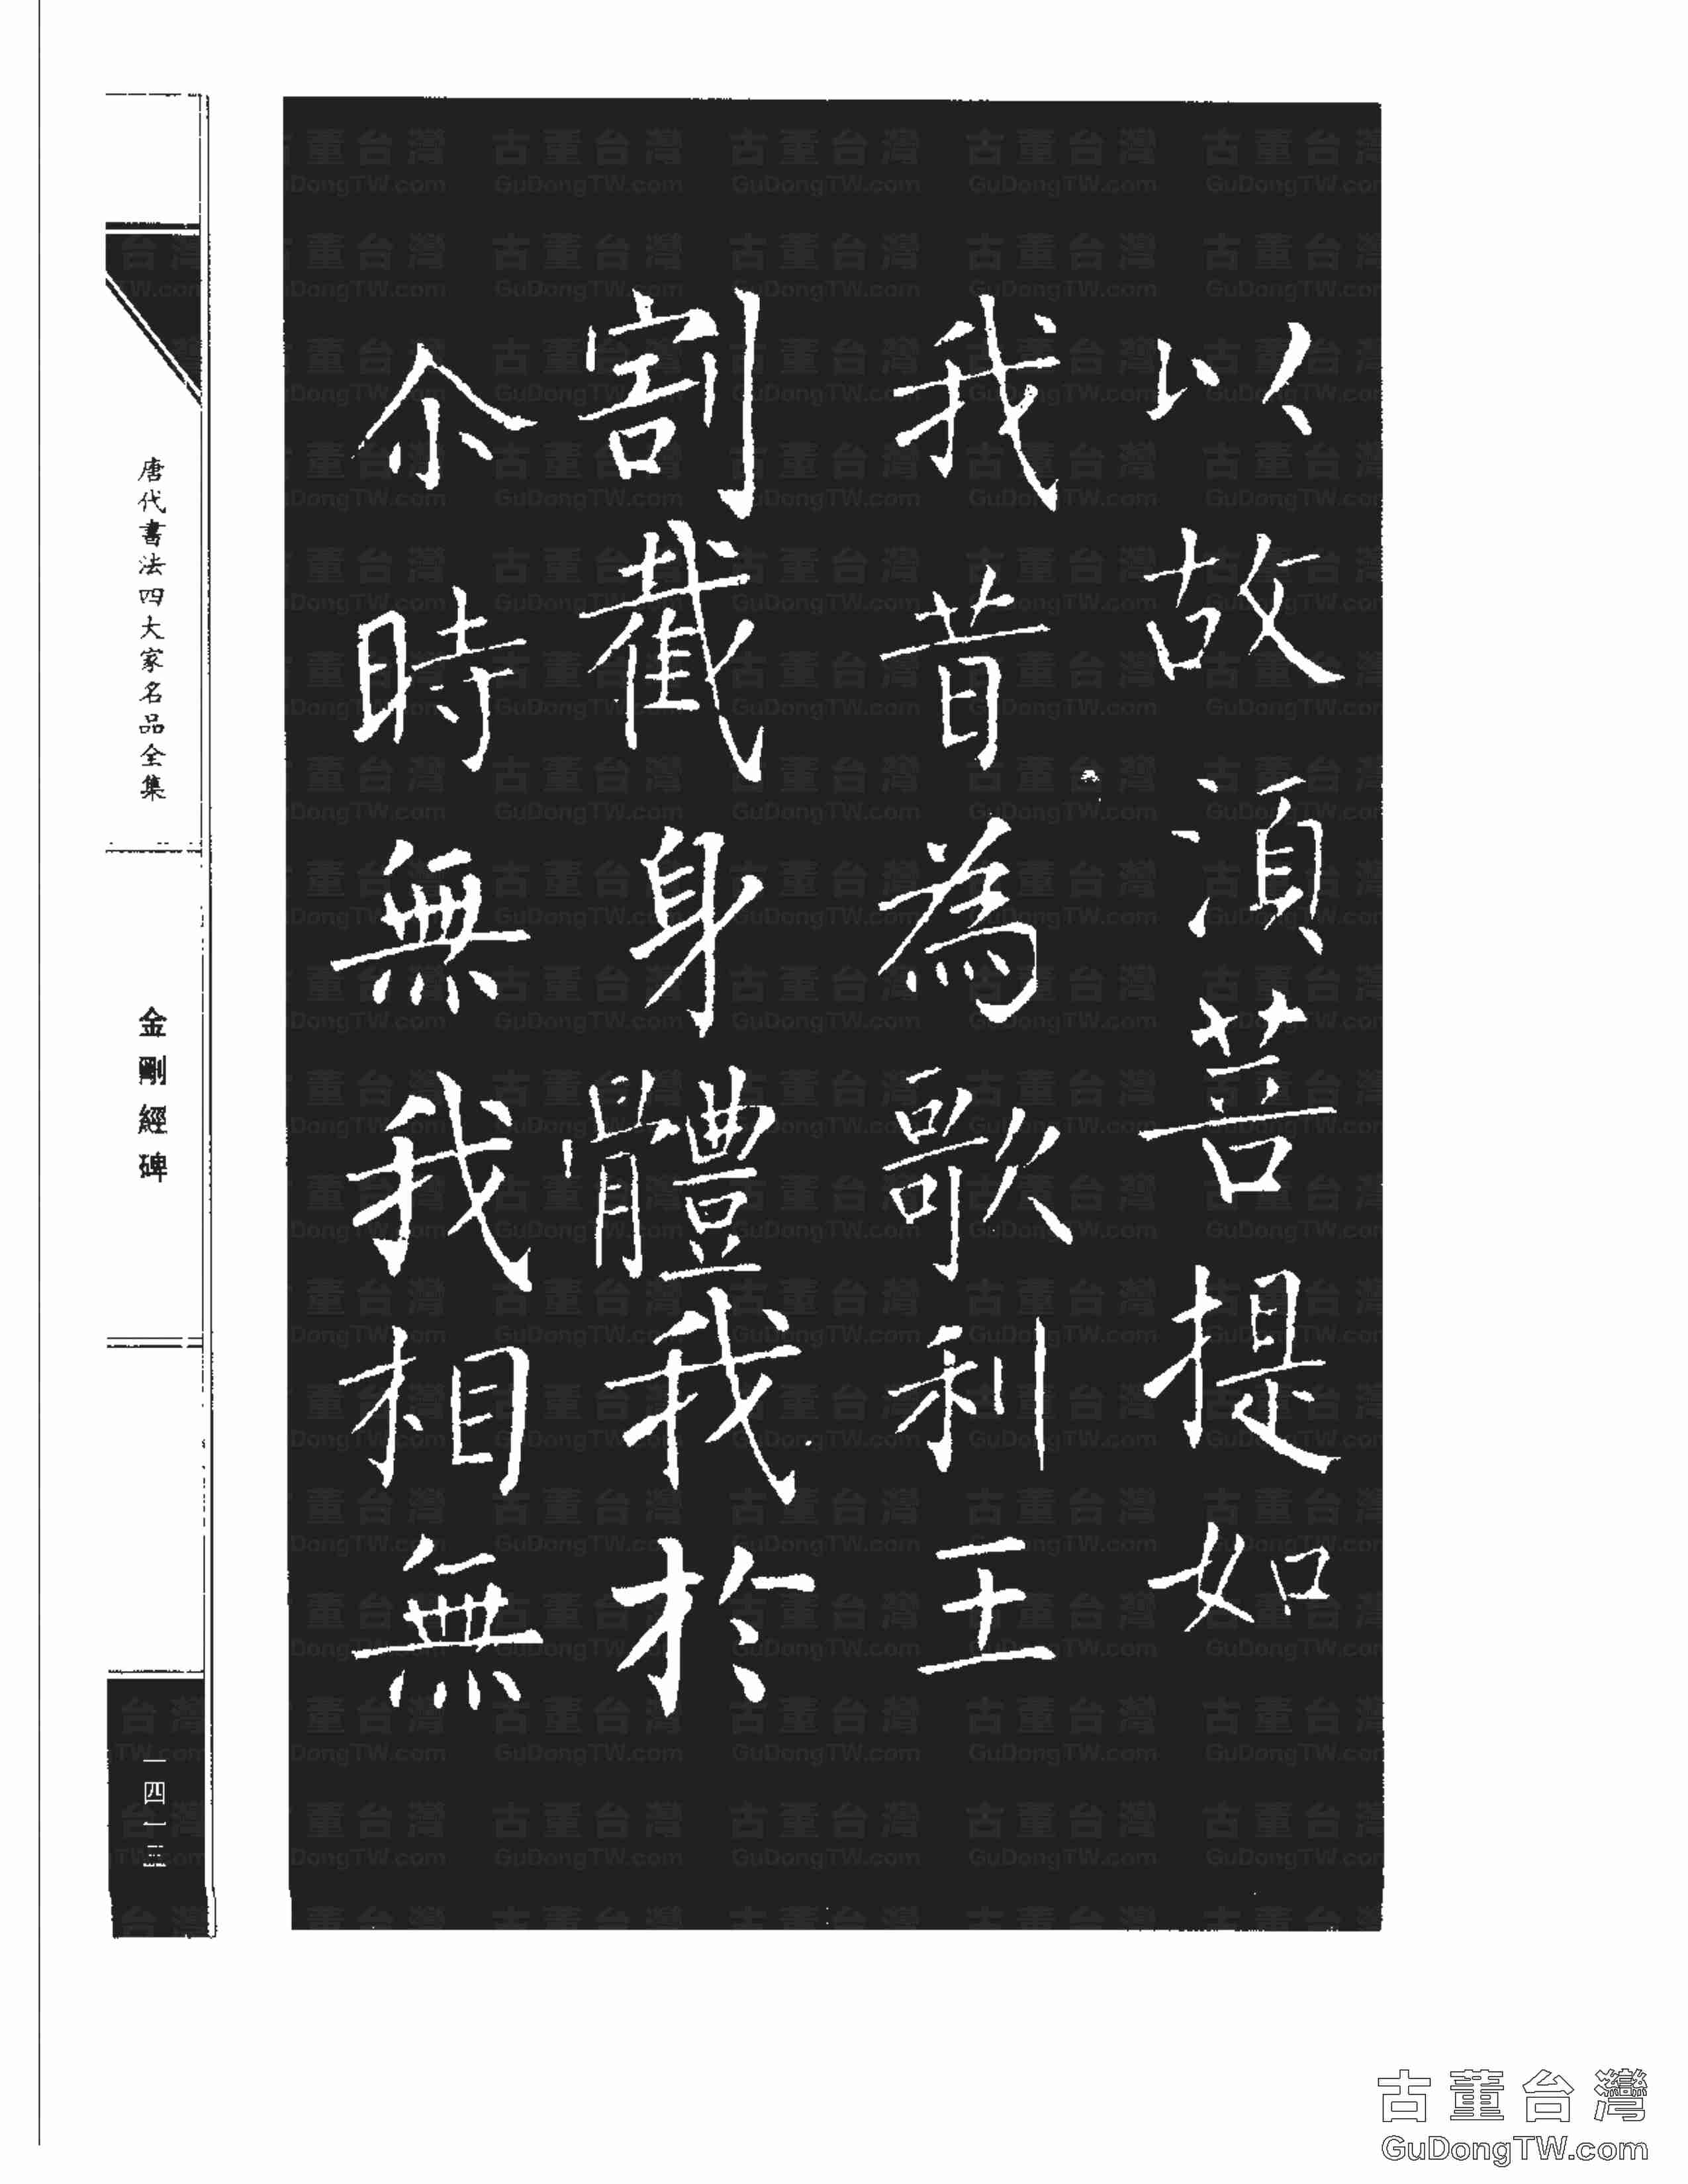 以故須菩提如
我昔為歌利王
割截身體我於
尒時無我相無
唐代書法四大家名品全集
金剛經碑
一四一三
古董台灣
GuDongTW.com